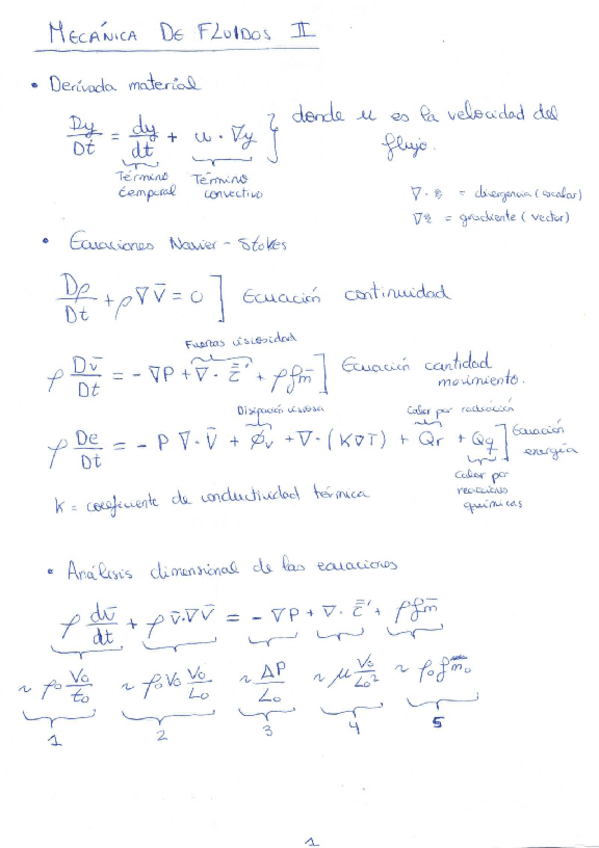 MECÁNICA DE FLUIDOS II
• Derivada material
Dy/Dt = dy/dt + u · ∇y } donde u es la velocidad del flujo.
Término temporal
Término convectivo
∇·% = divergencia (escalar)
∇% = gradiente (vector)
• Ecuaciones Navier-Stokes
Dρ/Dt + ρ∇v̄ = 0 ] Ecuación continuidad
Fuerzas viscosidad
ρ Dv̄/Dt = -∇P + ∇·τ̿' + ρf̄m ] Ecuación cantidad movimiento.
Disipación viscosa
Calor por radiación
ρ De/Dt = -P∇·v̄ + ϕv + ∇·(K∇T) + Qr + Qq ] Ecuación energía
Calor por reacciones químicas
K = coeficiente de conductividad térmica
• Análisis dimensional de las ecuaciones
ρ dv̄/dt + ρv̄·∇v̄ = -∇P + ∇·τ̿' + ρf̄m
~ ρ0 V0/t0 ~ ρ0V0 V0/L0 ~ ΔP/L0 ~ μ V0/L0² ~ ρ0fm0
1 2 3 4 5
1